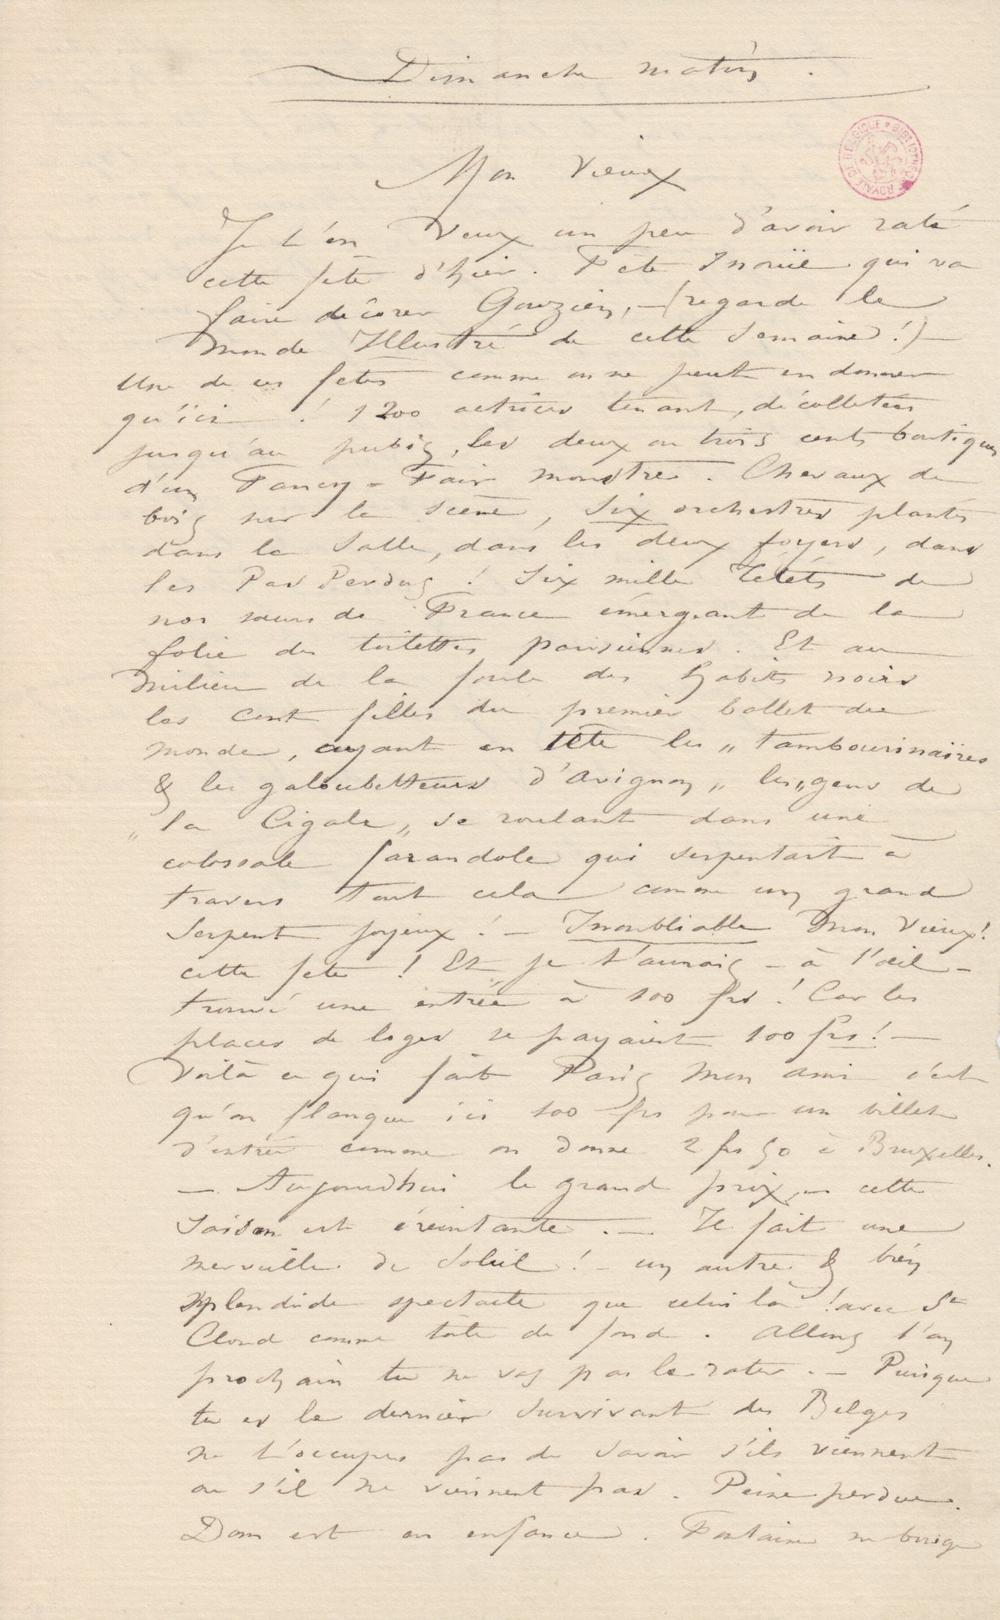 Dimanche matin.
BIBLIOTHÈQUE ROYALE DE BELGIQUE
Mon Vieux
Je t'en Veux un peu d'avoir raté
cette fête d'hier. Fête Inouïe qui va
faire décorer Gouzien, – (regarde le
Monde Illustré de cette semaine!) –
Une de ces fêtes comme on ne peut en donner
qu'ici ! 1200 actrices tenant, décolletées
jusqu'au pubis, les deux ou trois cents boutiques
d'un Fancy-Fair monstre. Chevaux de
bois sur la scène, Six orchestres plantés
dans la Salle, dans les deux foyers, dans
les Pas Perdus ! Six mille Tétés de
nos sœurs de France émergeant de la
folie des toilettes parisiennes. Et au
milieu de la foule des habits noirs
les cent filles du premier ballet du
monde, ayant en tête les „ tambourinaïres
& les galoubetteurs d'Avignon „ les „ gens de
„ la Cigale „ se roulant dans une
colossale farandole qui serpentait à
travers tout cela comme un grand
Serpent joyeux ! – Inoubliable Mon Vieux !
cette fête ! Et je t'aurais – à l'œil –
trouvé une entrée à 100 frs ! Car les
places de loges se payaient 100 frs ! –
Voilà ce qui fait Paris mon ami c'est
qu'on flanque ici 100 frs pour un billet
d'entrée comme on donne 2 frs 50 à Bruxelles.
– Aujourdhui le grand prix, – cette
saison est éreintante. – Il fait une
merveille de Soleil ! – un autre & bien
splendide spectacle que celui là ! avec St
Cloud comme toile de fond. Allons l'an
prochain tu ne vas pas le rater. – Puisque
tu es le dernier survivant des Belges
ne t'occupes pas de savoir s'ils viennent
ou s'il ne viennent pas. Peine perdue.
Dom est en enfance. Fontaine ne bouge